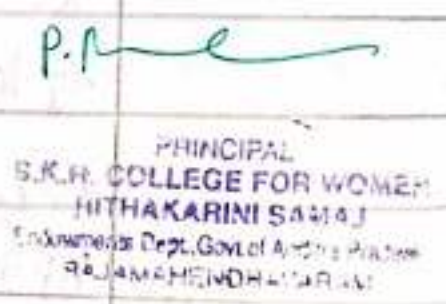 P.
PRINCIPAL
S.K.R. COLLEGE FOR WOMEN
HITHAKARINI SAMAJ
Endowments Dept., Govt. of Andhra Pradesh
RAJAMAHENDRAVARAM